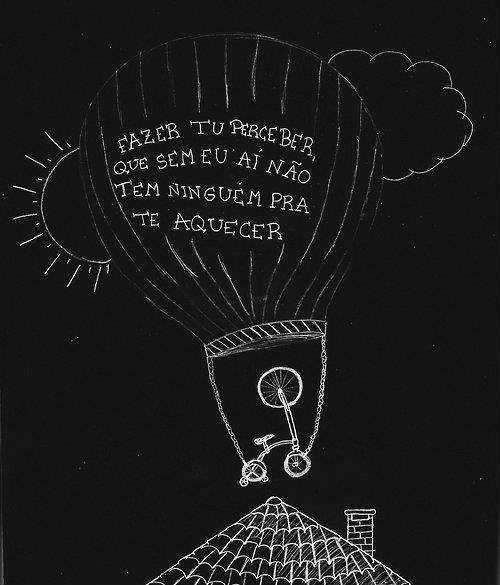 FAZER TU PERCEBER,
QUE SEM EU AÍ NÃO
TEM NINGUÉM PRA
TE AQUECER